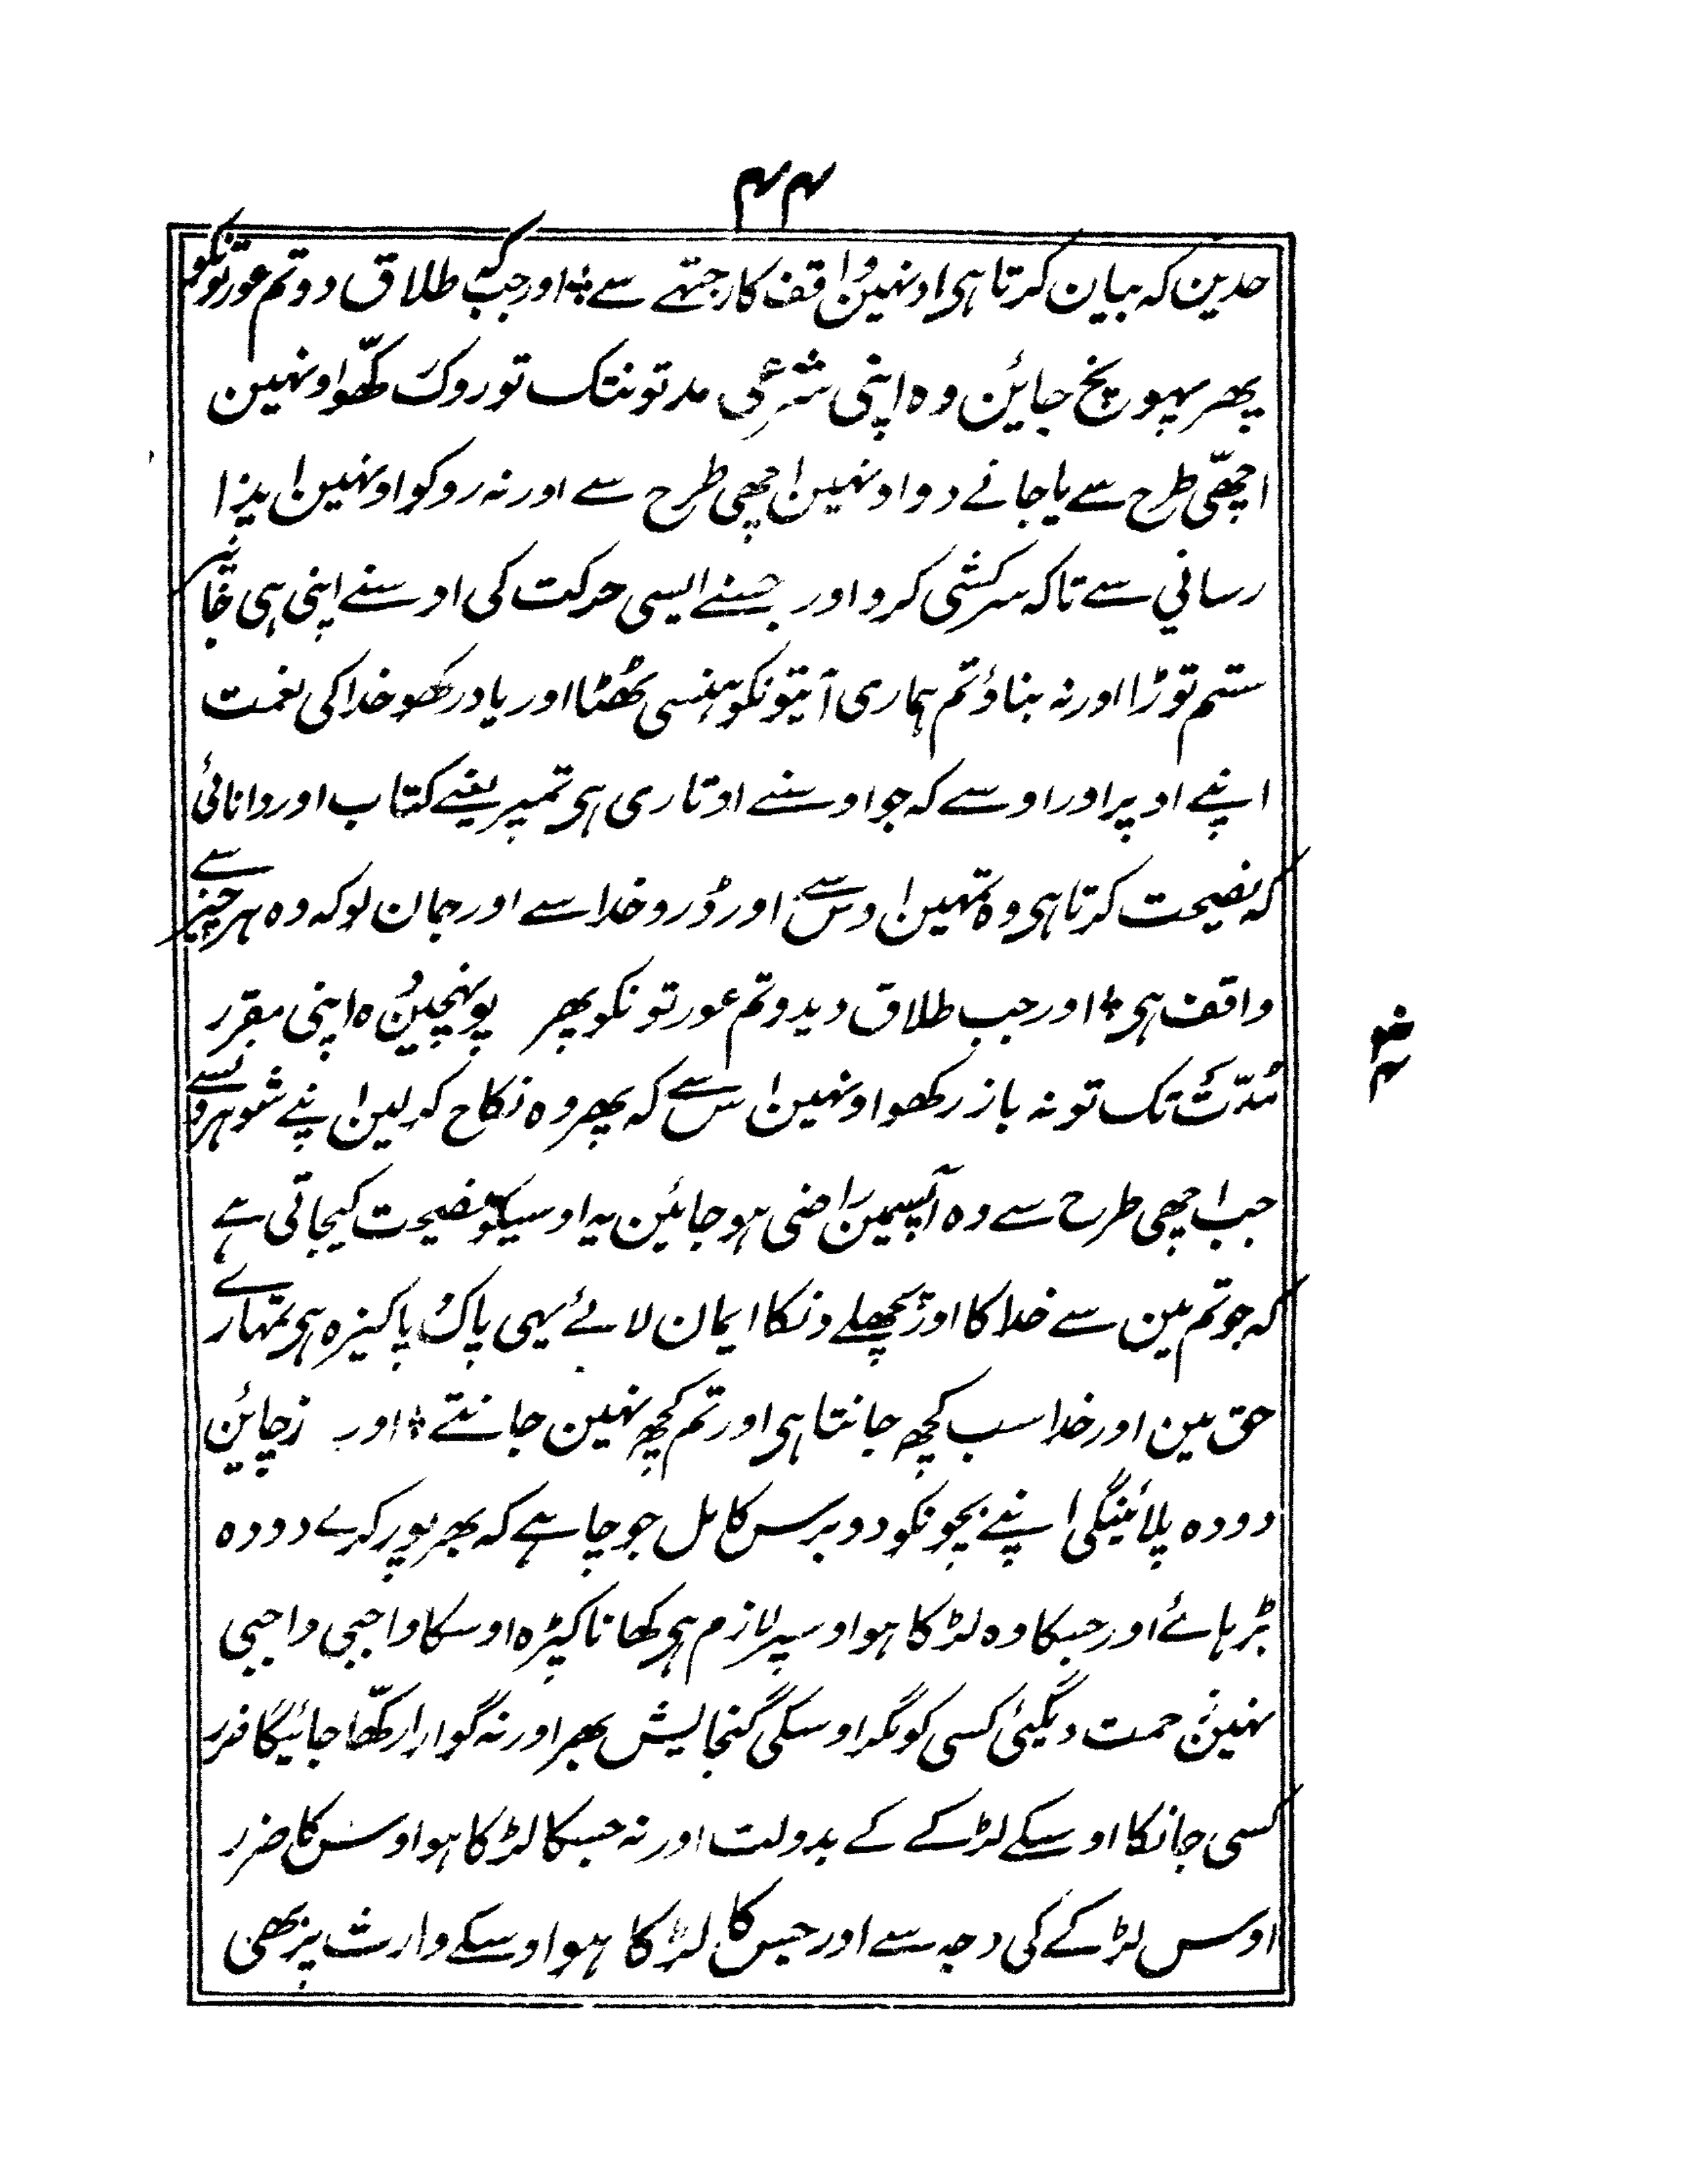 ۴۴
حدین کہ بیان کرتا ہی اونہین واقف کار جتہے سے اور جب کہ طلاق دو تم عورتونکو
پھر پہونچ جائین وہ اپنی شرعی مدتونتک تو روک رکّھو اونہین
اچھّی طرح سے یا جانے دو اونہین اچھی طرح سے اور نہ روکو اونہین ایذا
رسانی سے تاکہ سرکشی کرو اور جسنے ایسی حرکت کی اوسنے اپنی ہی جان پر
ستم توڑا اور نہ بناؤ تم ہماری آیتونکو ہنسی ٹھٹا اور یاد رکھو خدا کی نعمت
اپنے اوپر اور اوسے کہ جو اوسنے اوتاری ہی تمپر یعنے کتاب اور دانائی
کہ نصیحت کرتا ہی وہ تمہین اوس سے اور ڈرو خدا سے اور جان لو کہ وہ ہر چیز سے
واقف ہی اور جب طلاق دیدو تم عورتونکو پھر پونہچین وہ اپنی مقرر
مُدّت تک تو نہ باز رکھو اونہین اس سے کہ پھر وہ نکاح کرلین اپنے شوہرونسے
جب اچھی طرح سے وہ آپسمین راضی ہوجائین یہ اوسیکو نصیحت کیجاتی ہے
کہ جو تم مین سے خدا کا اور پچھلے دنکا ایمان لائے یہی پاک پاکیزہ ہی تمہارے
حق مین اور خدا سب کچھ جانتا ہی اور تم کچھ نہین جانتے اور زچائین
دودہ پلائینگی اپنے بچونکو دو برس کامل جو چاہے کہ بھرپور کرے دودہ
بڑہائے اور جسکا وہ لڑکا ہو اوسپر لازم ہی کھانا کپڑہ اوسکا واجبی واجبی
نہین زحمت دیگئی کسی کو مگر اوسکی گنجایش بھر اور نہ گوارا رکھّا جائیگا ضرر
کسی جانکا اوسکے لڑکے کے بدولت اور نہ جسکا لڑکا ہو اوس کا ضرر
اوس لڑکے کی وجہ سے اور جس کا لڑکا ہو اوسکے وارث پر بھی